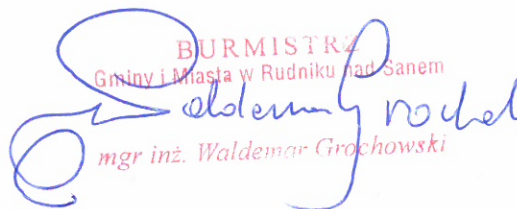 BURMISTRZ
Gminy i Miasta w Rudniku nad Sanem
Waldemar Grochol
mgr inż. Waldemar Grochowski